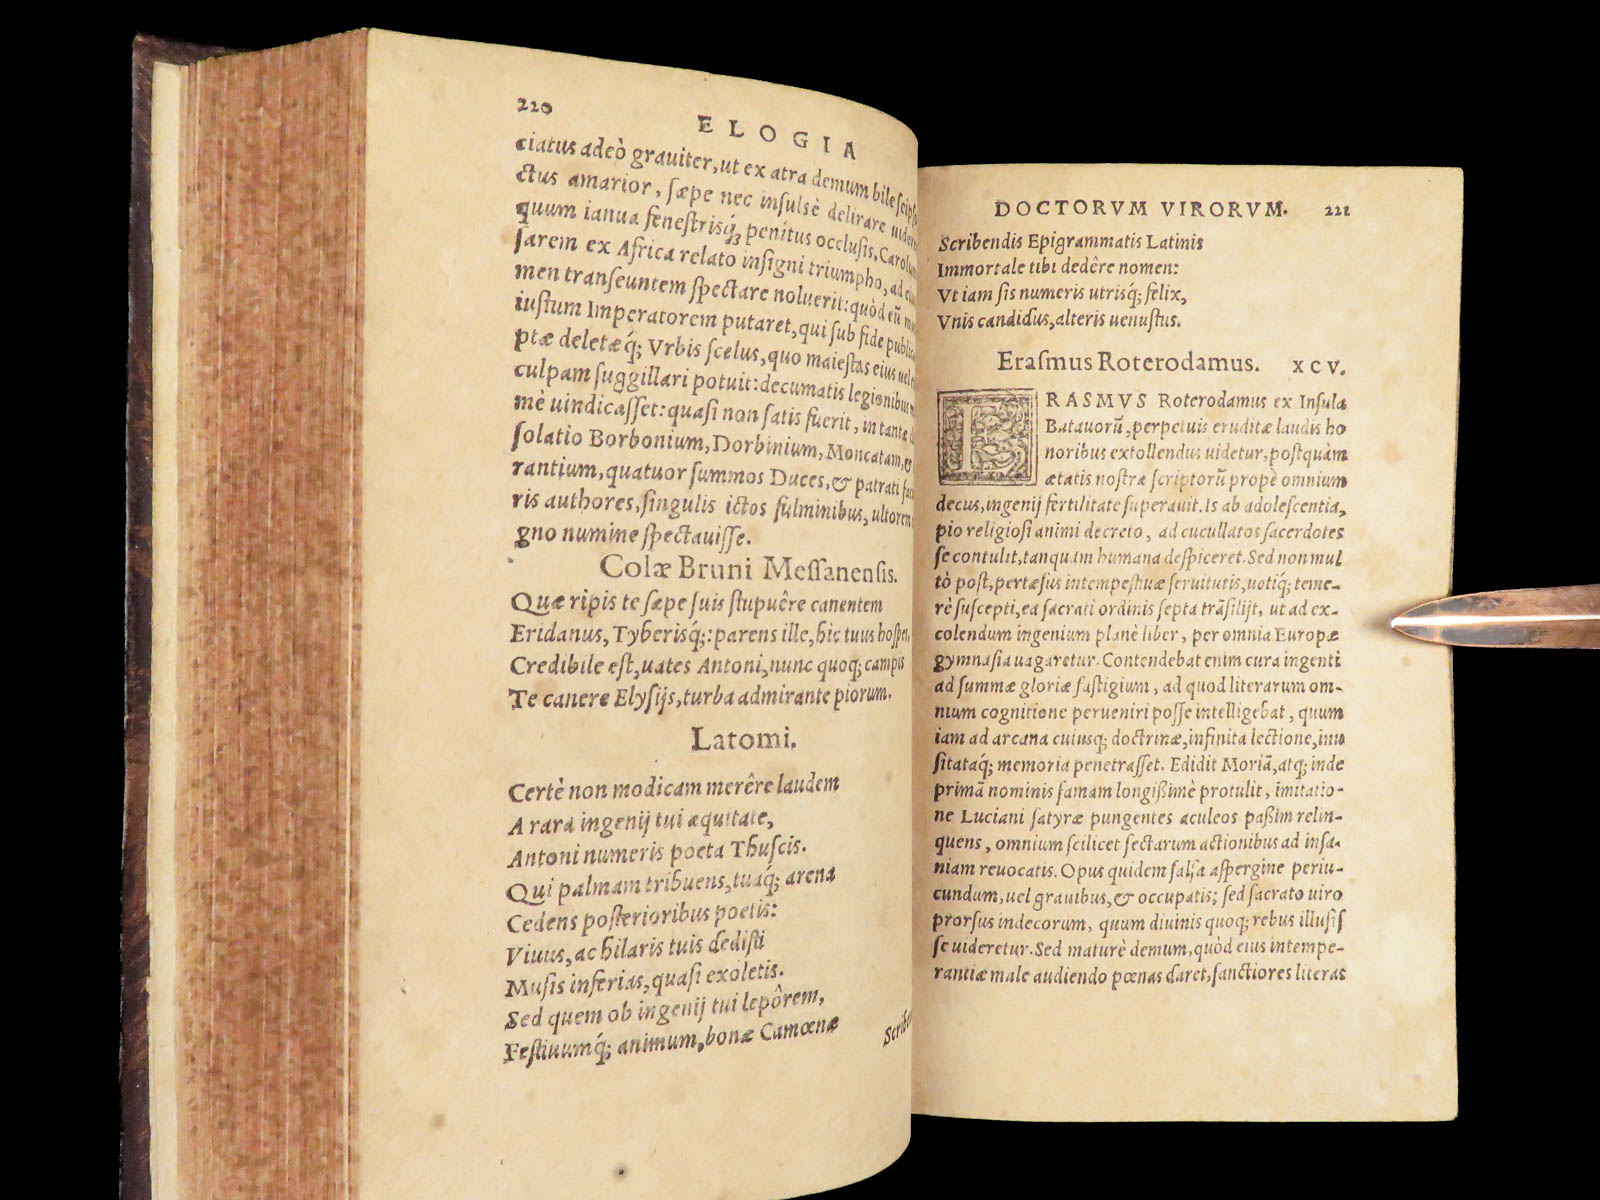 220
ELOGIA
ciatus adeò grauiter, ut ex atra demum bile
ctus amarior, sæpe nec insulsè delirare
quum ianua fenestrisq́; penitus occlusis,
sarem ex Africa relato insigni triumpho, ad
men transeuntem spectare noluerit: quòd eũ
iustum Imperatorem putaret, qui sub fide
ptæ deletæq́; Vrbis scelus, quo maiestas eius
culpam suggillari potuit: decumatis legionibus
mè uindicasset: quasi non satis fuerit, in tanta
solatio Borbonium, Dorbinium, Moncatam, &
rantium, quatuor summos Duces, & patrati
ris authores, singulis ictos fulminibus,
gno numine spectauisse.
Colæ Bruni Messanensis.
Quæ ripis te sæpe suis stupuêre canentem
Eridanus, Tyberisq́;: parens ille, hic tuus
Credibile est, uates Antoni, nunc quoq; campis
Te canere Elysijs, turba admirante piorum.
Latomi.
Certè non modicam merêre laudem
A rara ingenij tui æquitate,
Antoni numeris poeta Thuscis.
Qui palmam tribuens, tuaq́; arena
Cedens posterioribus poetis:
Viuus, ac hilaris tuis dedisti
Musis inferias, quasi exoletis.
Sed quem ob ingenij tui lepôrem,
Festiuumq́; animum, bonæ Camœnæ
DOCTORVM VIRORVM. 221
Scribendis Epigrammatis Latinis
Immortale tibi dedêre nomen:
Vt iam sis numeris utrisq́; felix,
Vnis candidus, alteris uenustus.
Erasmus Roterodamus. XCV.
ERASMVS Roterodamus ex Insula
Batauorũ, perpetuis eruditæ laudis ho
noribus extollendus uidetur, postquàm
ætatis nostræ scriptorũ propè omnium
decus, ingenij fertilitate superauit. Is ab adolescentia,
pio religiosi animi decreto, ad cucullatos sacerdotes
se contulit, tanquam humana despiceret. Sed non mul
tò post, pertæsus intempestiuæ seruitutis, uotiq́; teme-
rè suscepti, ea sacrati ordinis septa trãsilijt, ut ad ex-
colendum ingenium planè liber, per omnia Europæ
gymnasia uagaretur. Contendebat enim cura ingenti
ad summæ gloriæ fastigium, ad quod literarum om-
nium cognitione perueniri posse intelligebat, quum
iam ad arcana cuiusq; doctrinæ, infinita lectione, inu
sitataq́; memoria penetrasset. Edidit Moriã, atq; inde
primã nominis famam longißimè protulit, imitatio-
ne Luciani satyræ pungentes aculeos paßim relin-
quens, omnium scilicet sectarum actionibus ad insa-
niam reuocatis. Opus quidem salsa aspergine periu-
cundum, uel grauibus, & occupatis; sed sacrato uiro
prorsus indecorum, quum diuinis quoq; rebus illusiss
se uideretur. Sed maturè demum, quòd eius intempe-
rantiæ male audiendo pœnas daret, sanctiores literas